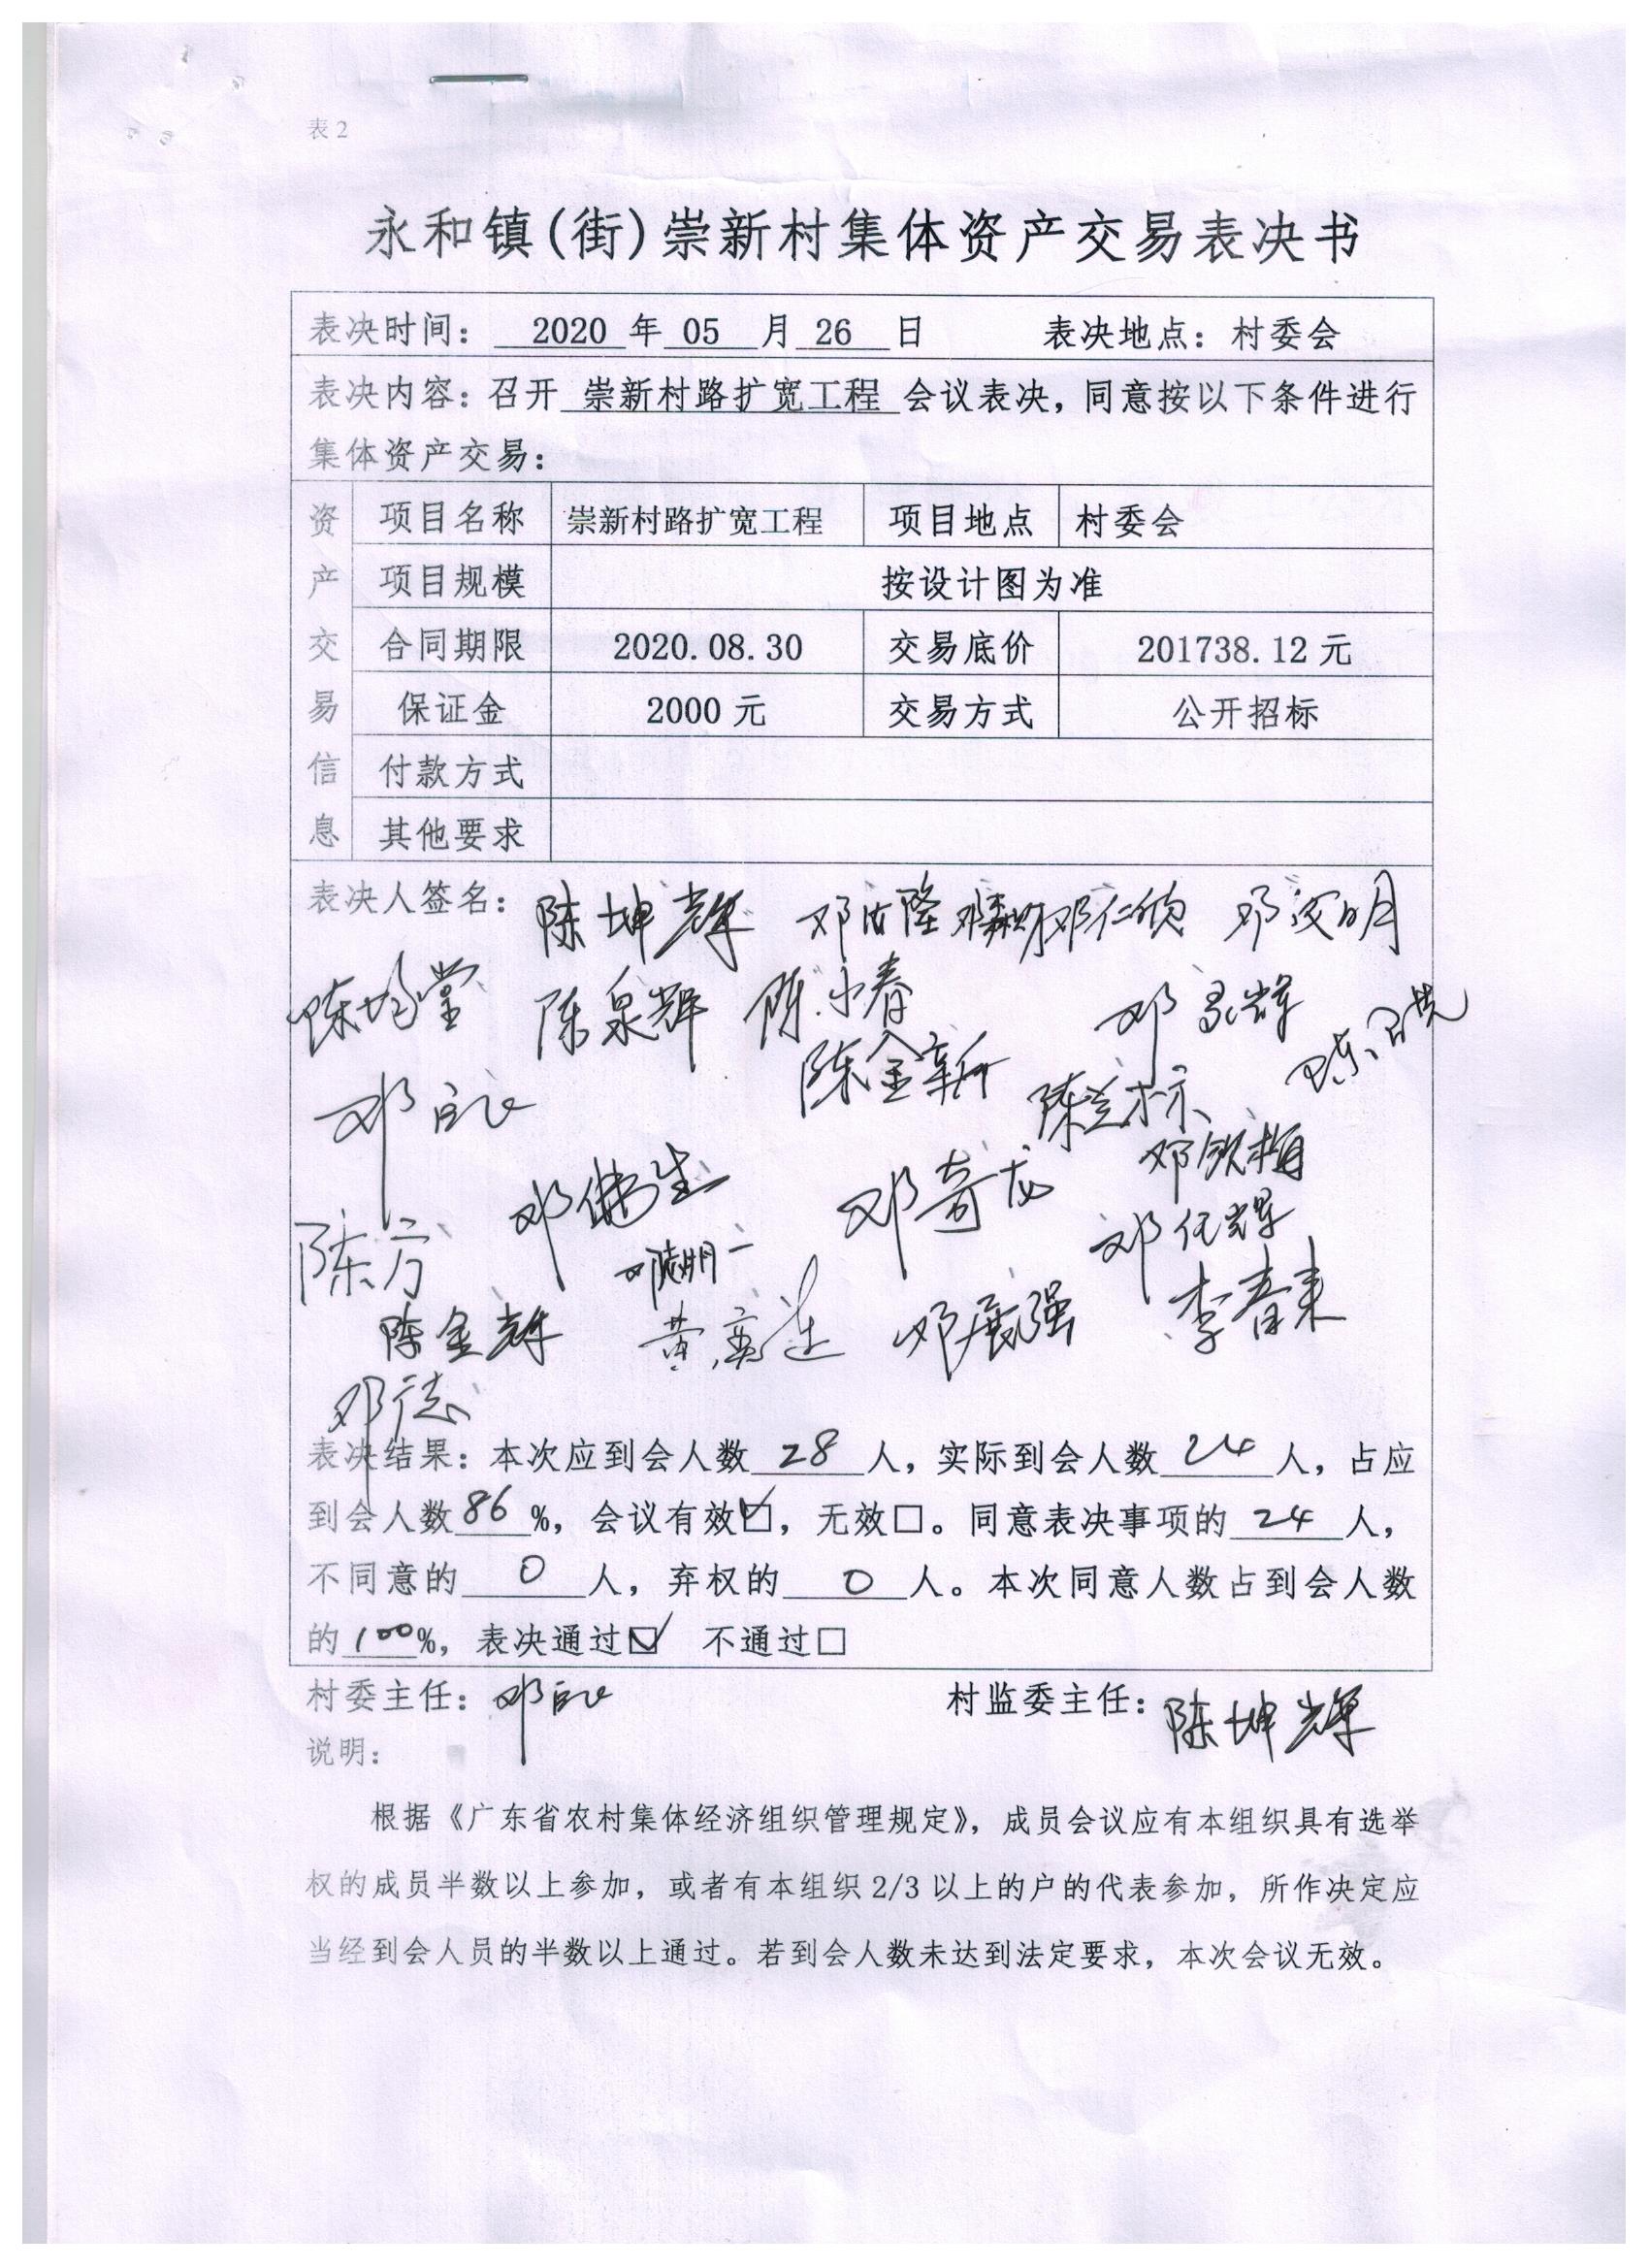 表2
永和镇(街)崇新村集体资产交易表决书
表决时间： 2020 年 05 月 26 日 表决地点：村委会
表决内容：召开 崇新村路扩宽工程 会议表决，同意按以下条件进行
集体资产交易：
资产交易信息
项目名称 崇新村路扩宽工程 项目地点 村委会
项目规模 按设计图为准
合同期限 2020.08.30 交易底价 201738.12元
保证金 2000元 交易方式 公开招标
付款方式
其他要求
表决人签名： 陈坤辉 邓 隆 邓仁 邓 明
陈 堂 陈泉辉 陈小春 邓 辉 陈
邓 陈金新 陈 标
邓 梅
陈方 邓佛生 邓奇龙 邓伍辉
陈金辉 黄 莲 邓展强 李春来
邓广志
表决结果：本次应到会人数 28 人，实际到会人数 24 人，占应
到会人数 86 %，会议有效☑，无效□。同意表决事项的 24 人，
不同意的 0 人，弃权的 0 人。本次同意人数占到会人数
的 100 %，表决通过☑ 不通过□
村委主任：邓 村监委主任：陈坤辉
说明：
根据《广东省农村集体经济组织管理规定》，成员会议应有本组织具有选举
权的成员半数以上参加，或者有本组织2/3以上的户的代表参加，所作决定应
当经到会人员的半数以上通过。若到会人数未达到法定要求，本次会议无效。